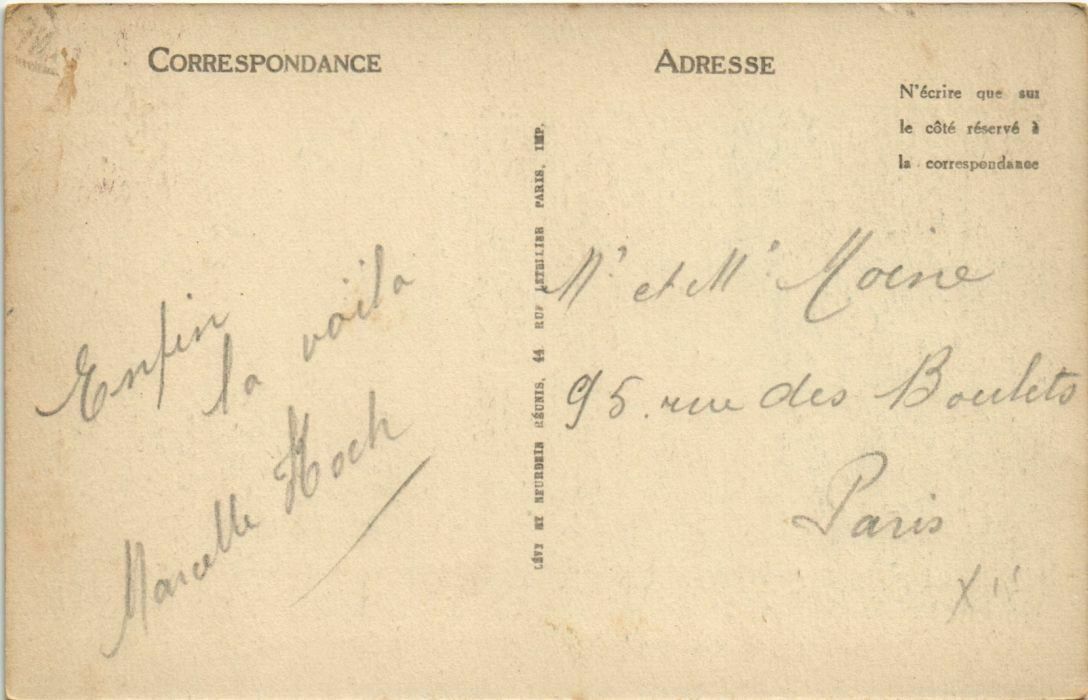 CORRESPONDANCE
Enfin
la voila
Marcelle Koch
LÉVY ET NEURDEIN RÉUNIS, 44 RUE LETELLIER PARIS, IMP.
ADRESSE
N'écrire que sur
le côté réservé à
la correspondance
Mr et Me Moine
95. rue des Boulets
Paris